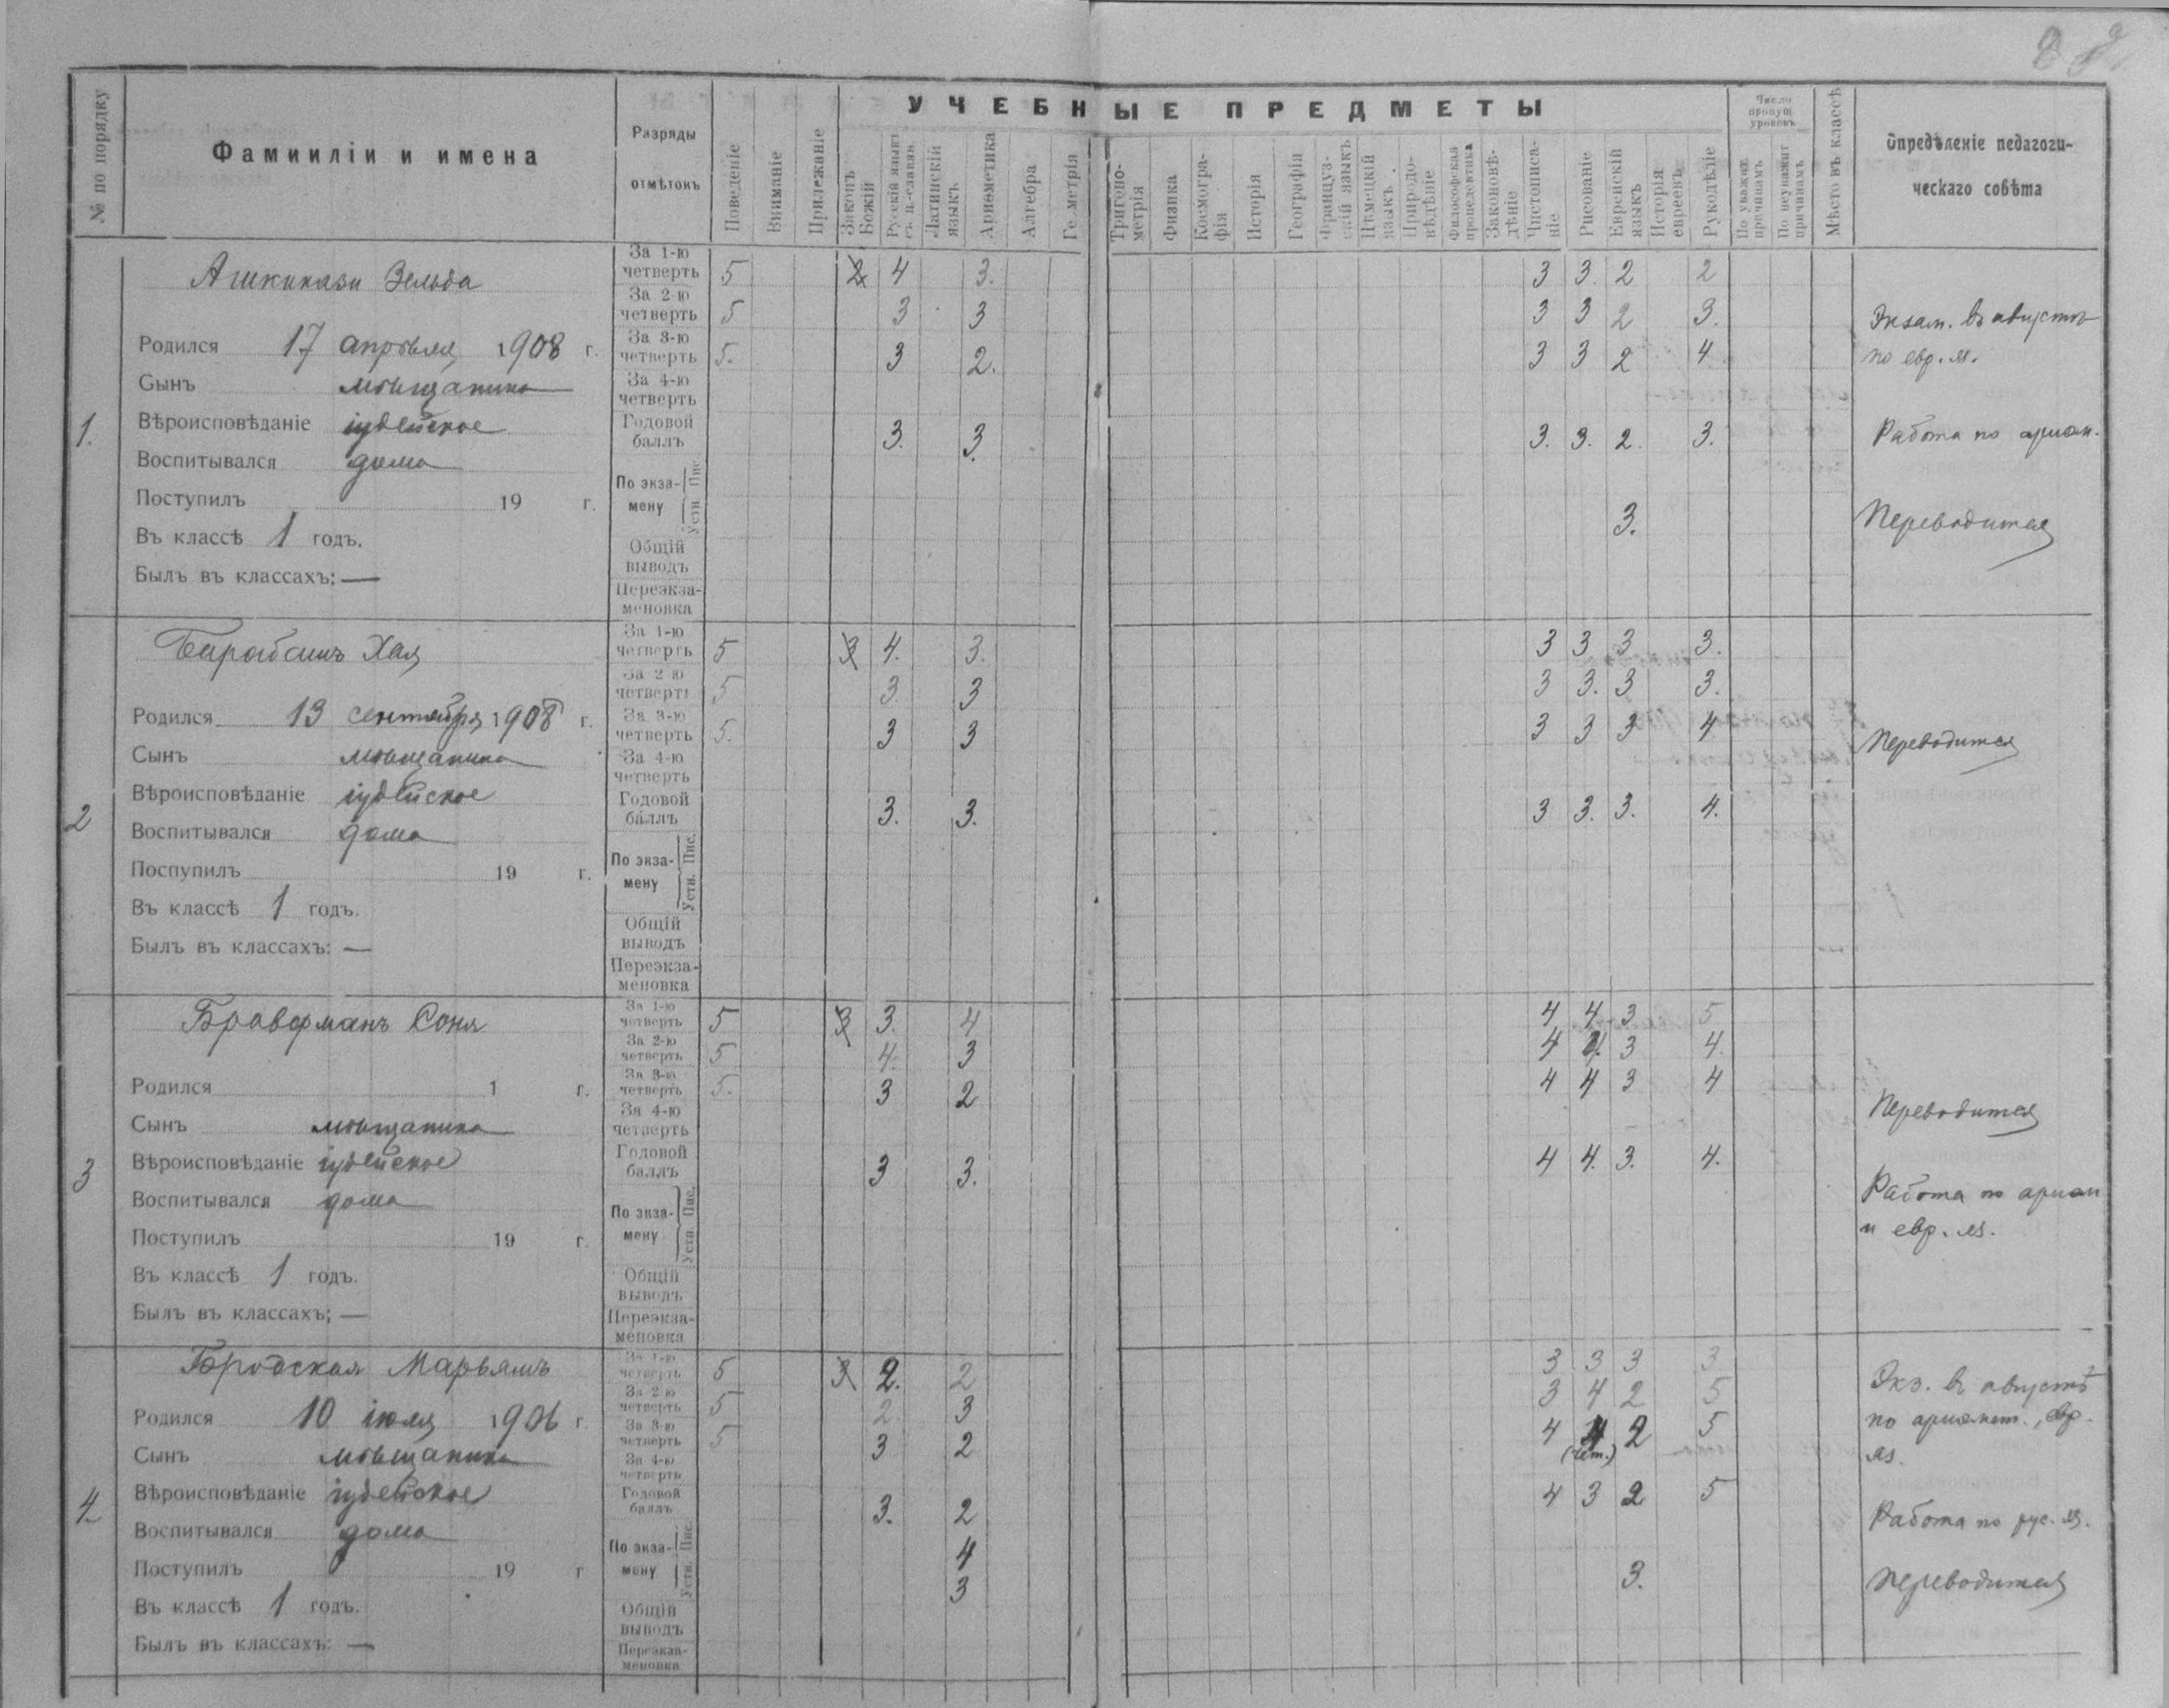 УЧЕБНЫЕ ПРЕДМЕТЫ
№ по порядку
Фамииліи и имена
Разряды
отмѣтокъ
Поведеніе
Вниманіе
Прилежаніе
Законъ
Божій
Русскій языкъ
съ ц.-славян.
Латинскій
языкъ
Ариѳметика
Алгебра
Ге метрія
Тригоно-
метрія
Физика
Космогра-
фія
Исторія
Географія
Француз-
скій языкъ
Нѣмецкій
языкъ
Природо-
вѣдѣніе
Философская
пропедевтика
Законовѣ-
дѣніе
Чистописа-
ніе
Рисованіе
Еврейскій
языкъ
Исторія
евреевъ
Рукодѣліе
Число
пропущ.
уроковъ
По уважит
причинамъ
По неуважит
причинамъ
Мѣсто въ классѣ
Опредѣленіе педагоги-
ческаго совѣта
1.
Ашкинази Зельда
Родился 17 апрѣля 1908 г.
Сынъ мѣщанина
Вѣроисповѣданіе іудейское
Воспитывался дома
Поступилъ 19 г.
Въ классѣ 1 годъ.
Былъ въ классахъ: —
За 1-ю четверть 5 2 4 3. 3 3. 2 2
За 2-ю четверть 5 3 3 3 3 2 3.
За 3-ю четверть 5. 3 2. 3 3 2 4
За 4-ю четверть
Годовой баллъ 3. 3. 3. 3. 2. 3.
По экза-мену Пис. Устн. 3.
Общій выводъ
Переэкза-меновка
Экзам. въ августѣ
по евр. яз.
Работа по ариѳм.
Переводится
2
Барабашъ Хая
Родился 13 сентября 1908 г.
Сынъ мѣщанина
Вѣроисповѣданіе іудейское
Воспитывался дома
Поспупилъ 19 г.
Въ классѣ 1 годъ.
Былъ въ классахъ: —
За 1-ю четверть 5 3 4. 3. 3 3 3 3.
За 2-ю четверть 5 3 3 3 3. 3 3.
За 3-ю четверть 5. 3 3 3 3 3 4
За 4-ю четверть
Годовой баллъ 3. 3. 3 3. 3. 4.
По экза-мену Пис. Устн.
Общій выводъ
Переэкза-меновка
Переводится
3
Браверманъ Соня
Родился 1 г.
Сынъ мѣщанина
Вѣроисповѣданіе іудейское
Воспитывался дома
Поступилъ 19 г.
Въ классѣ 1 годъ.
Былъ въ классахъ; —
За 1-ю четверть 5 3 3. 4 4 4 3 5
За 2-ю четверть 5 4. 3 4 4 3 4.
За 3-ю четверть 5. 3 2 4 4 3 4
За 4-ю четверть
Годовой баллъ 3 3. 4 4. 3. 4.
По экза-мену Пис. Устн.
Общій выводъ
Переэкза-меновка
Переводится
Работа по ариѳм
и евр. яз.
4.
Бродская Марьямъ
Родился 10 іюля 1906 г.
Сынъ мѣщанина
Вѣроисповѣданіе іудейское
Воспитывался дома
Поступилъ 19 г
Въ классѣ 1 годъ.
Былъ въ классахъ: —
За 1-ю четверть 5 3 2. 2 3 3 3 3
За 2-ю четверть 5 2 3 3 4 2 5
За 3-ю четверть 5 3 2 4 4 2 5
(чет.)
За 4-ю четверть
Годовой баллъ 3. 2 4 3 2 5
По экза-мену Пис. 4
Устн. 3 3.
Общій выводъ
Переэкза-меновка
Экз. въ августѣ
по ариѳмет., евр.
яз.
Работа по рус. яз.
Переводится